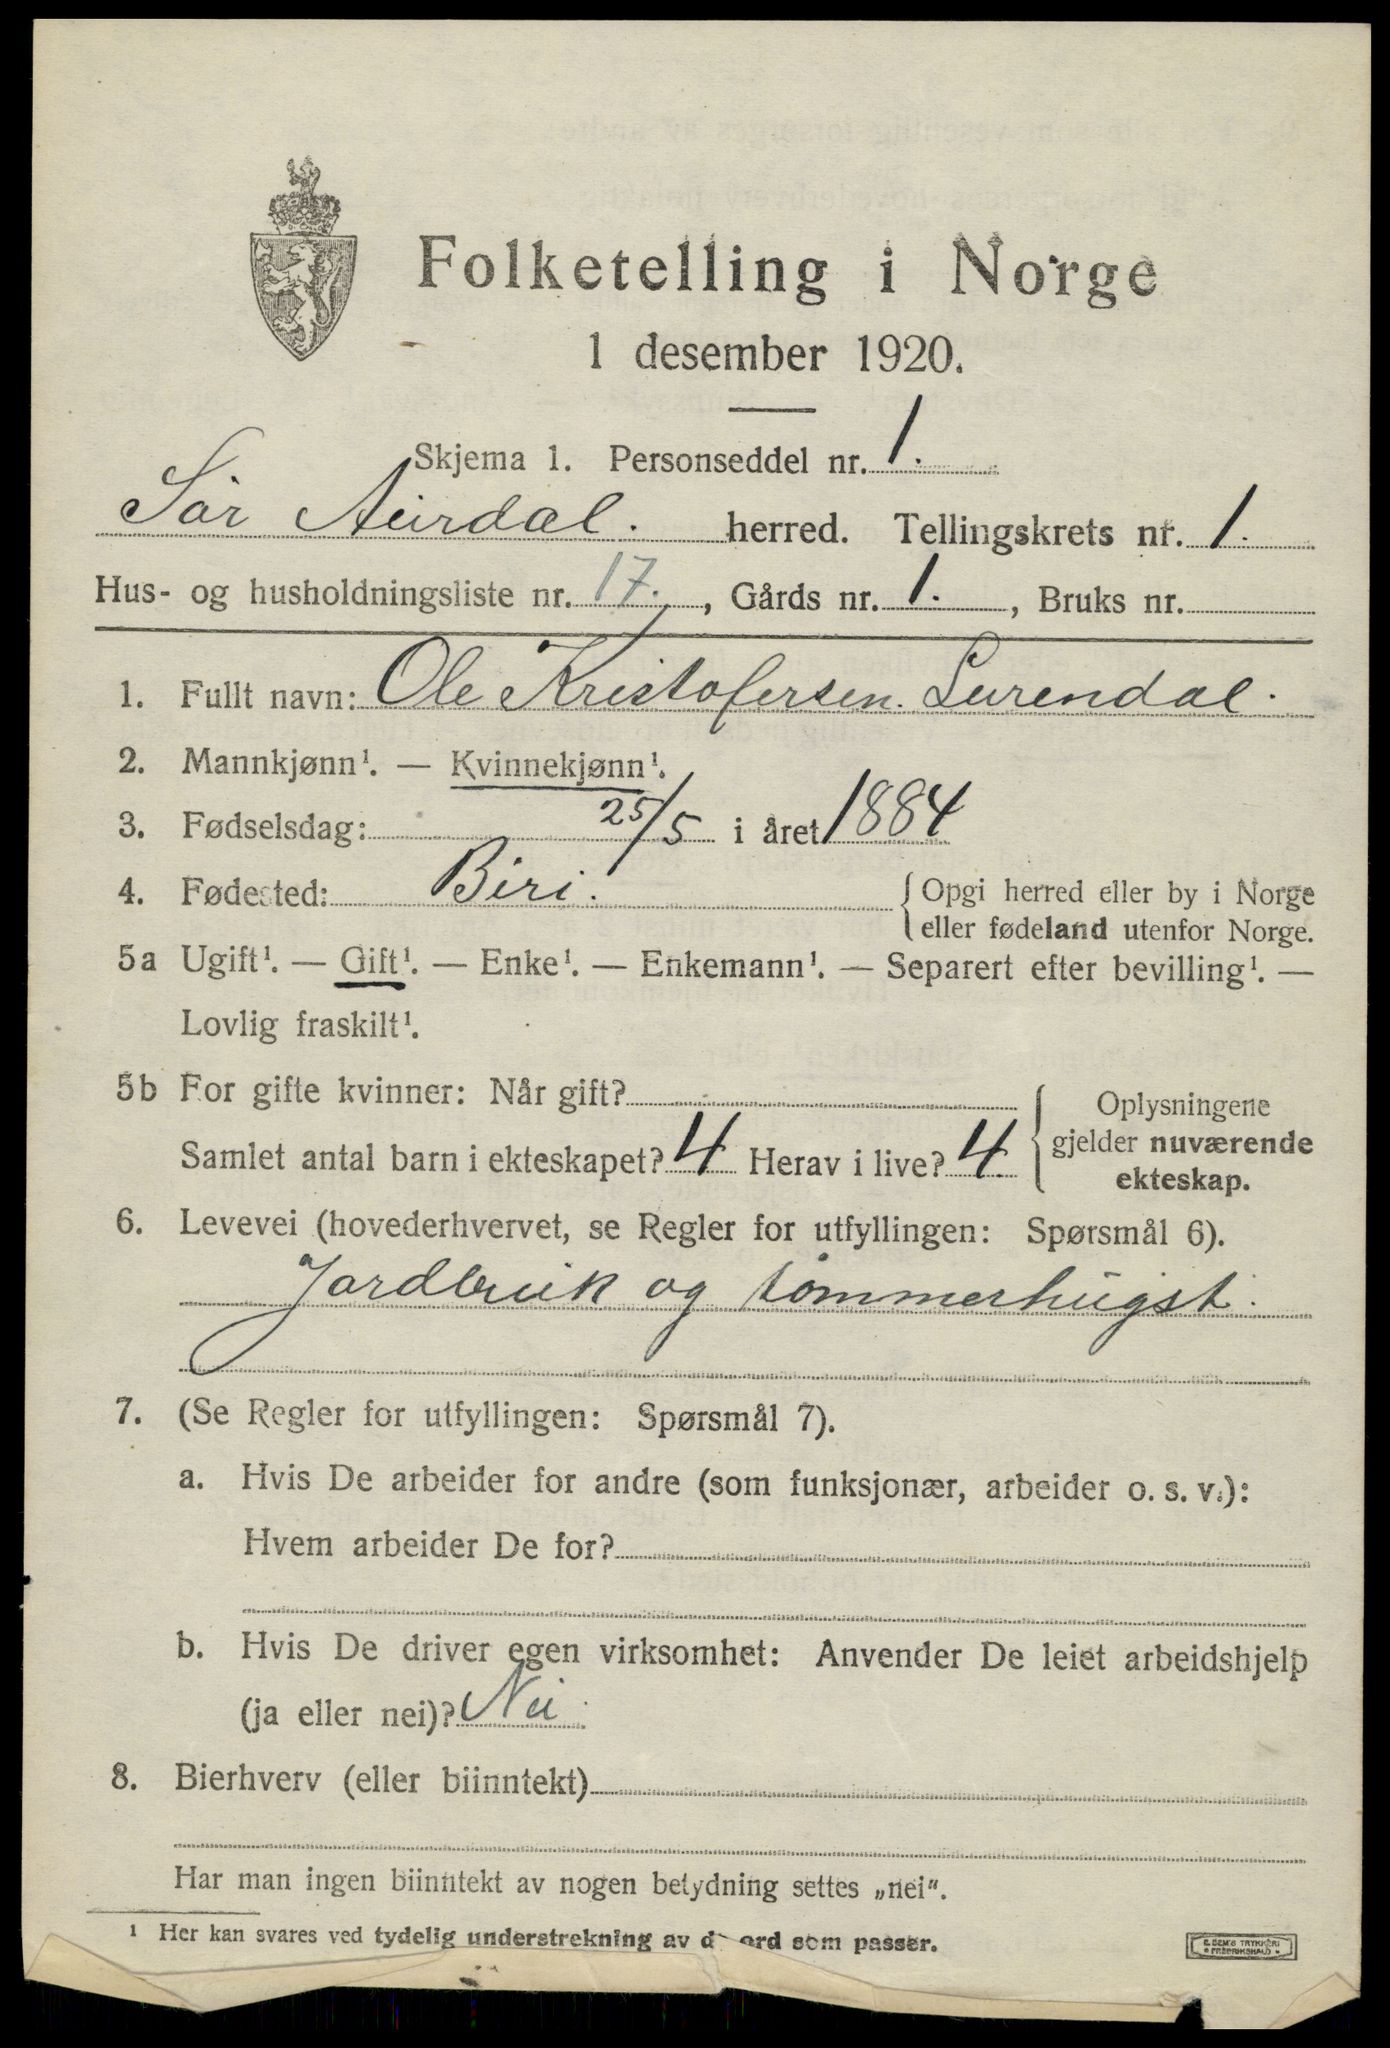 Folketelling i Norge
1 desember 1920.
Skjema 1. Personseddel nr. 1.
Sør Aurdal. herred. Tellingskrets nr. 1.
Hus- og husholdningsliste nr. 17., Gårds nr. 1., Bruks nr.
1. Fullt navn: Ole Kristofersen. Lurendal.
2. Mannkjønn¹. — Kvinnekjønn¹.
3. Fødselsdag: 25/5 i året 1884
4. Fødested: Biri. { Opgi herred eller by i Norge
eller fødeland utenfor Norge.
5a Ugift¹. — Gift¹. — Enke¹. — Enkemann¹. — Separert efter bevilling¹. —
Lovlig fraskilt¹.
5b For gifte kvinner: Når gift? { Oplysningene
Samlet antal barn i ekteskapet? 4 Herav i live? 4. gjelder nuværende
ekteskap.
6. Levevei (hovederhvervet, se Regler for utfyllingen: Spørsmål 6).
Jordbruk og tømmerhugst.
7. (Se Regler for utfyllingen: Spørsmål 7).
a. Hvis De arbeider for andre (som funksjonær, arbeider o. s. v.):
Hvem arbeider De for?
b. Hvis De driver egen virksomhet: Anvender De leiet arbeidshjelp
(ja eller nei)? Nei.
8. Bierhverv (eller biinntekt)
Har man ingen biinntekt av nogen betydning settes „nei".
¹ Her kan svares ved tydelig understrekning av d ord som passer.
E. SEM'S TRYKKERI
• FREDRIKSHALD •